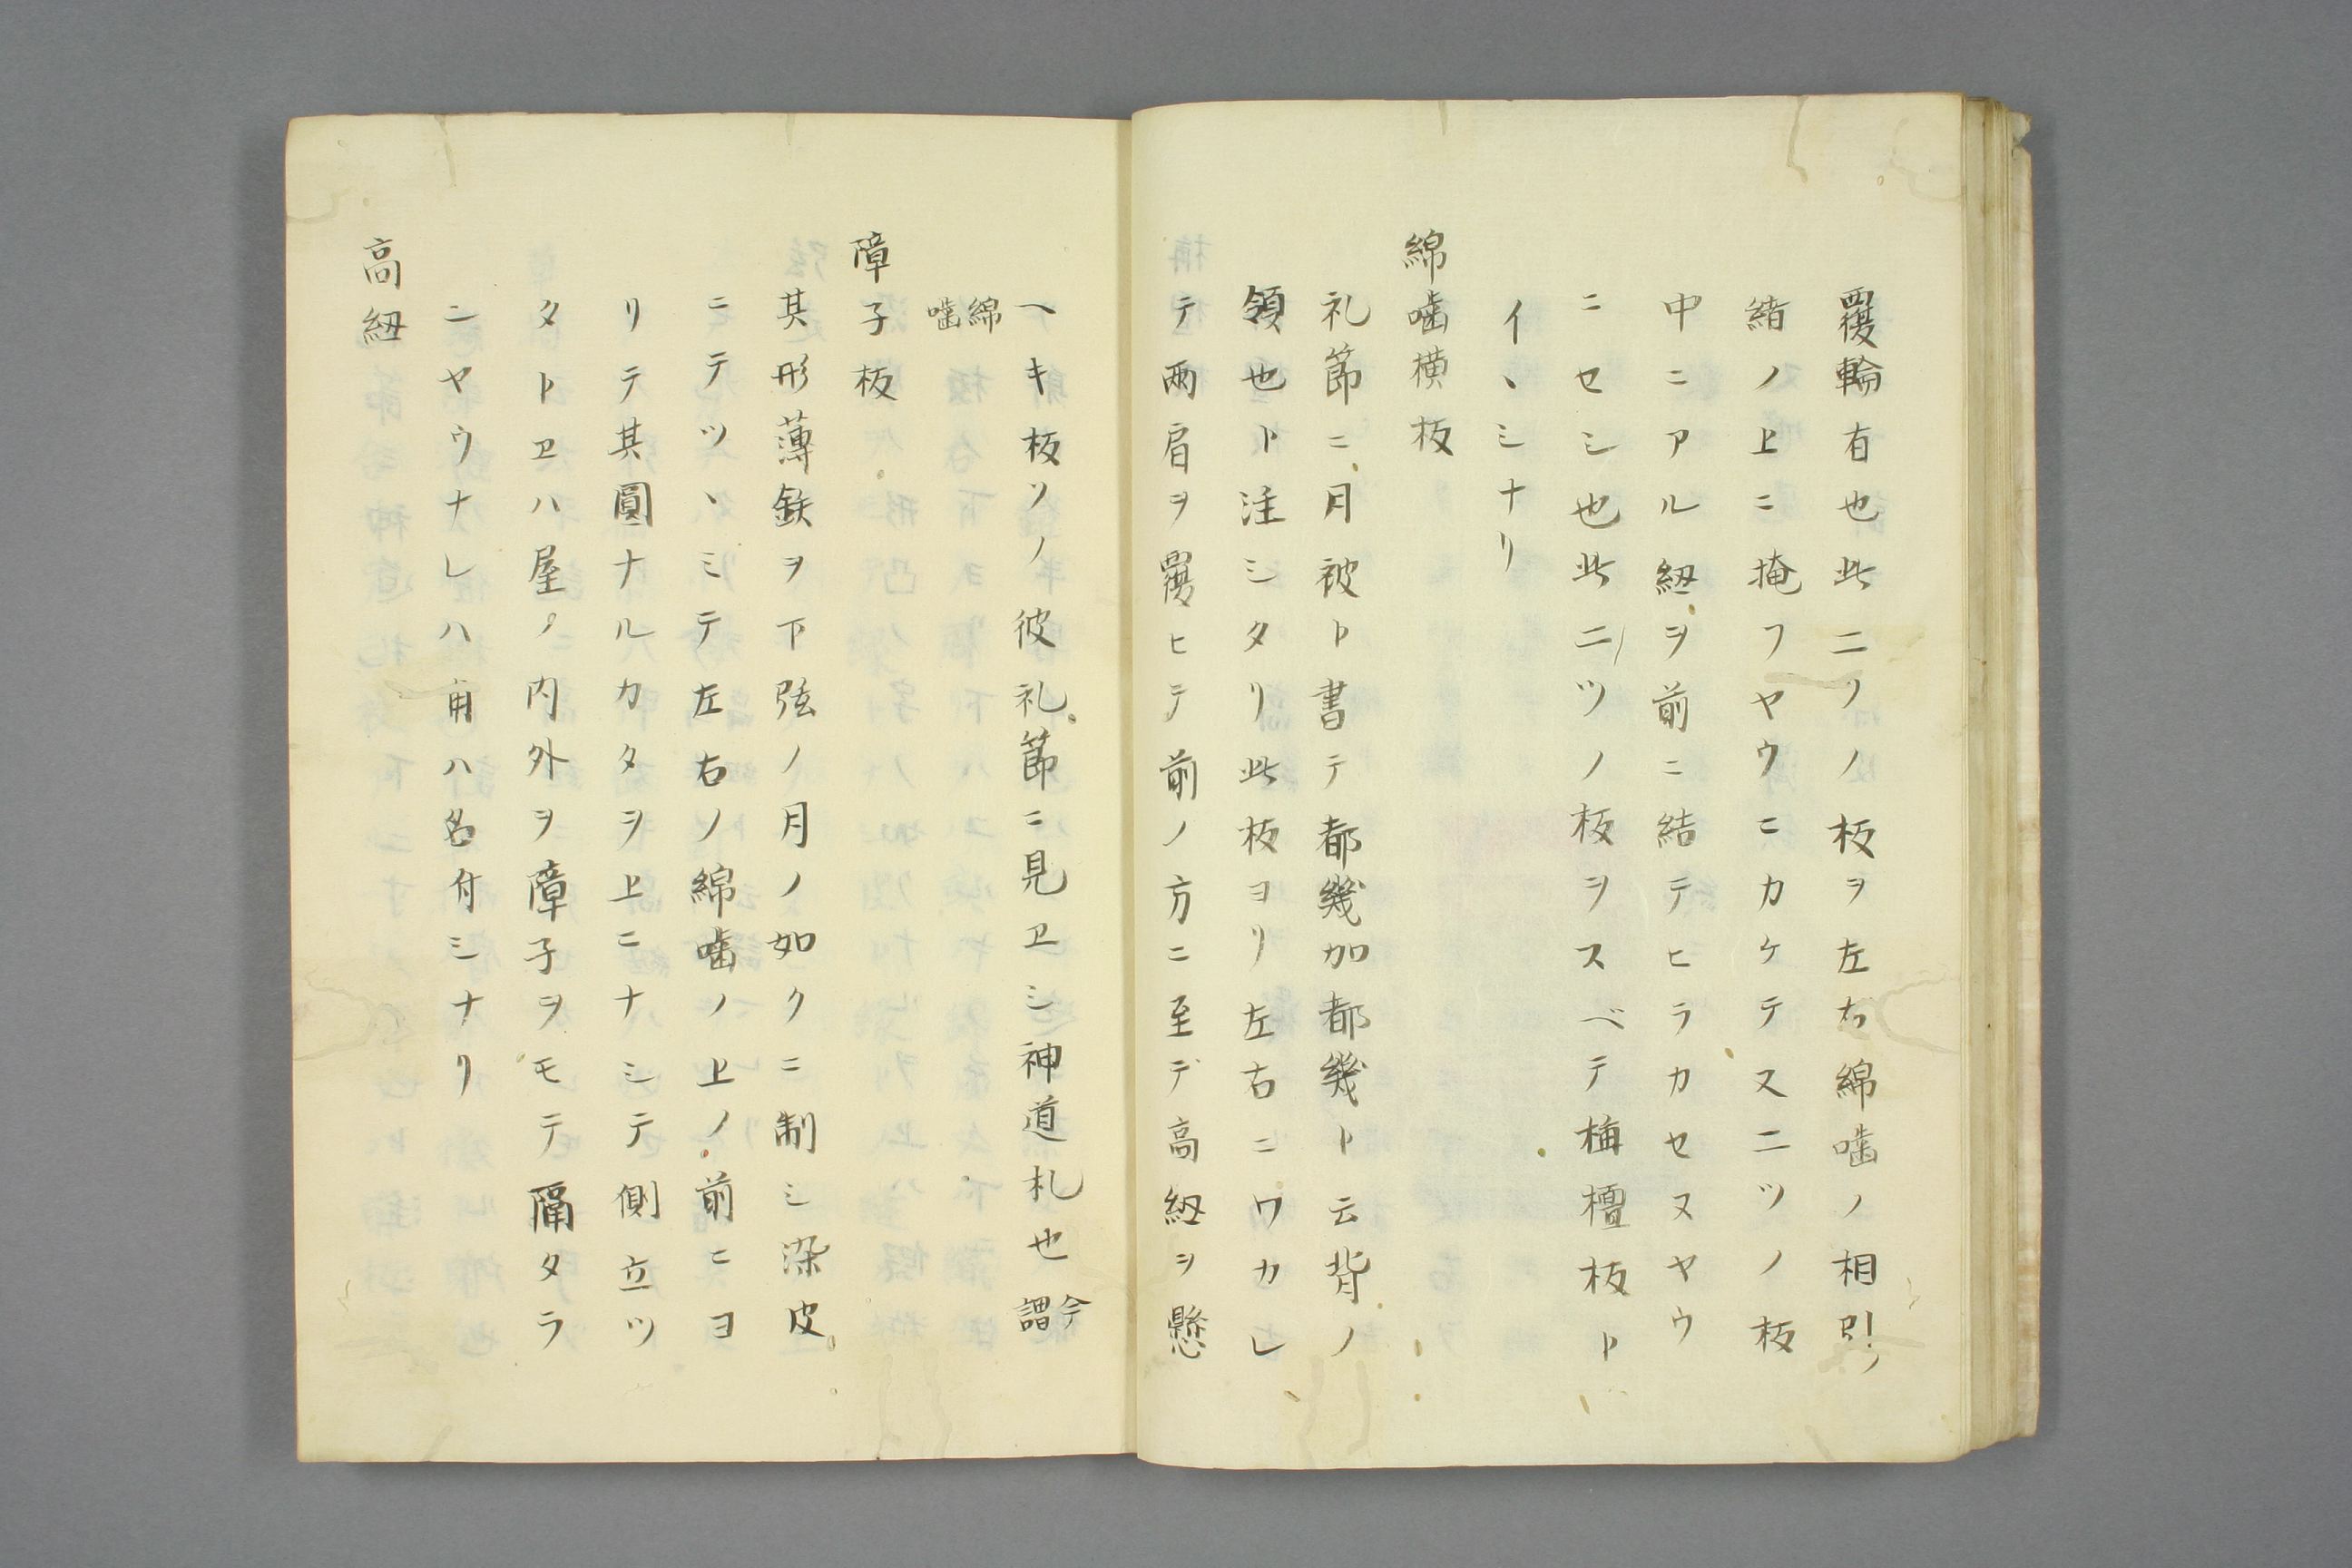 覆輪有也此二ツノ板ヲ左右綿噛ノ相引ノ
緒ノ上ニ掩フヤウニカケテス二ツノ板
中ニアル紐ヲ前ニ結テヒラカセヌヤウ
ニセシ也此二ツノ板ヲスベテ栴檀板ト
イヽシナリ
綿噛横板
礼節ニ月被ト書テ都幾加都幾ト云背ノ
領也ト注シタリ此板ヨリ左右ニワカレ
テ兩肩ヲ覆ヒテ前ノ方ニ至デ高紐ヲ懸
ヘキ板ツノ彼礼節ニ見ヱシ神道札也今謂
綿噛
障子板
其形薄鉄ヲ下弦ノ月ノ如クニ制シ染皮
ニテツヽミテ左右ノ綿噛ノ上ノ前ニヨ
リテ其圓ナルカタヲ上ニナシテ側立ツ
タトヱハ屋ノ内外ヲ障子ヲモテ隔タラ
ンヤウナレハ角ハ名付シナリ
高紐